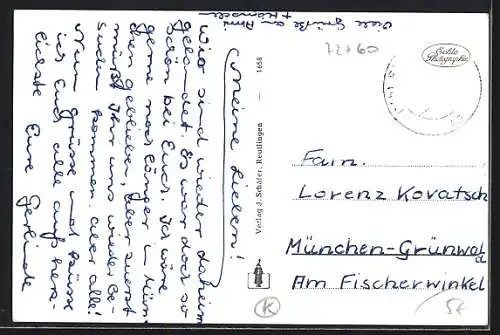 Viele Grüße an Anni
Meine Lieben!
Wir sind wieder daheim
gelandet. Es war doch so
schön bei Euch. Ich wäre
gerne noch länger in Mün-
chen geblieben, aber zuerst
müßt Ihr uns wieder be-
suchen kommen aber alle!
Nun grüße und küsse
ich Euch alle aufs herz-
lichste Eure Gerlinde
Verlag J. Schäfer, Reutlingen — 1658
72+60
Echte
Photographie
Fam.
Lorenz Kovatsch
München-Grünwald
Am Fischerwinkel
K